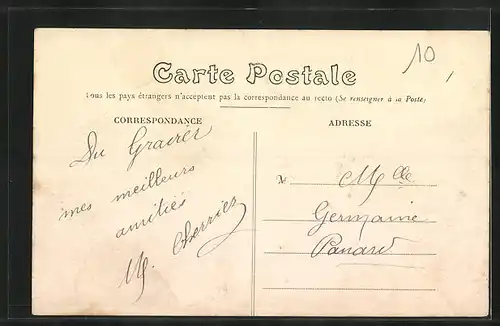 10
Carte Postale
Tous les pays étrangers n'acceptent pas la correspondance au recto (Se renseigner à la Poste)
CORRESPONDANCE
Du
mes meilleurs
amitiés
M.
ADRESSE
M
Mlle
Germaine
Panard